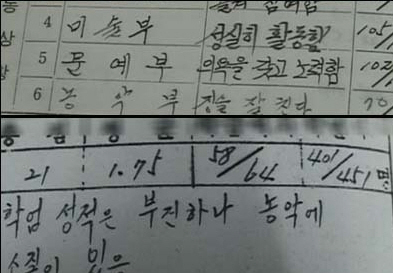 4 미술부 성실히 활동함 105/
5 문예부 의욕을 갖고 노력함 102/
6 농악부 징을 잘 친다 70/
21 1.75 58/64 401/451명
학업 성적은 부진하나 농악에
소질이 있음